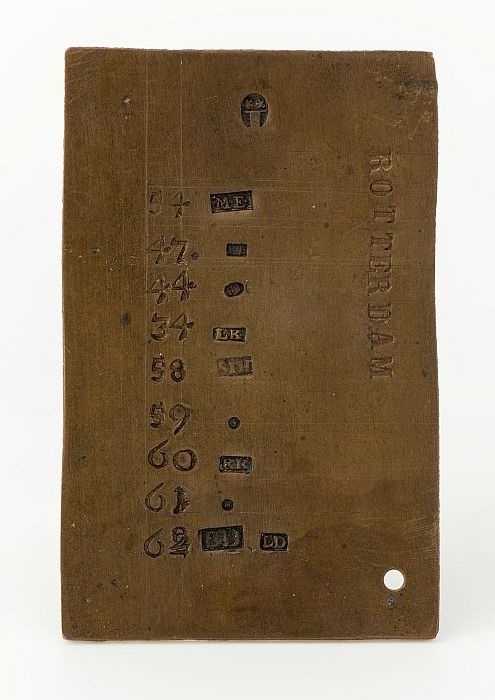 ROTTERDAM
54 ME
47
44
34 LK
58
59
60 KK
61
62 LD LD